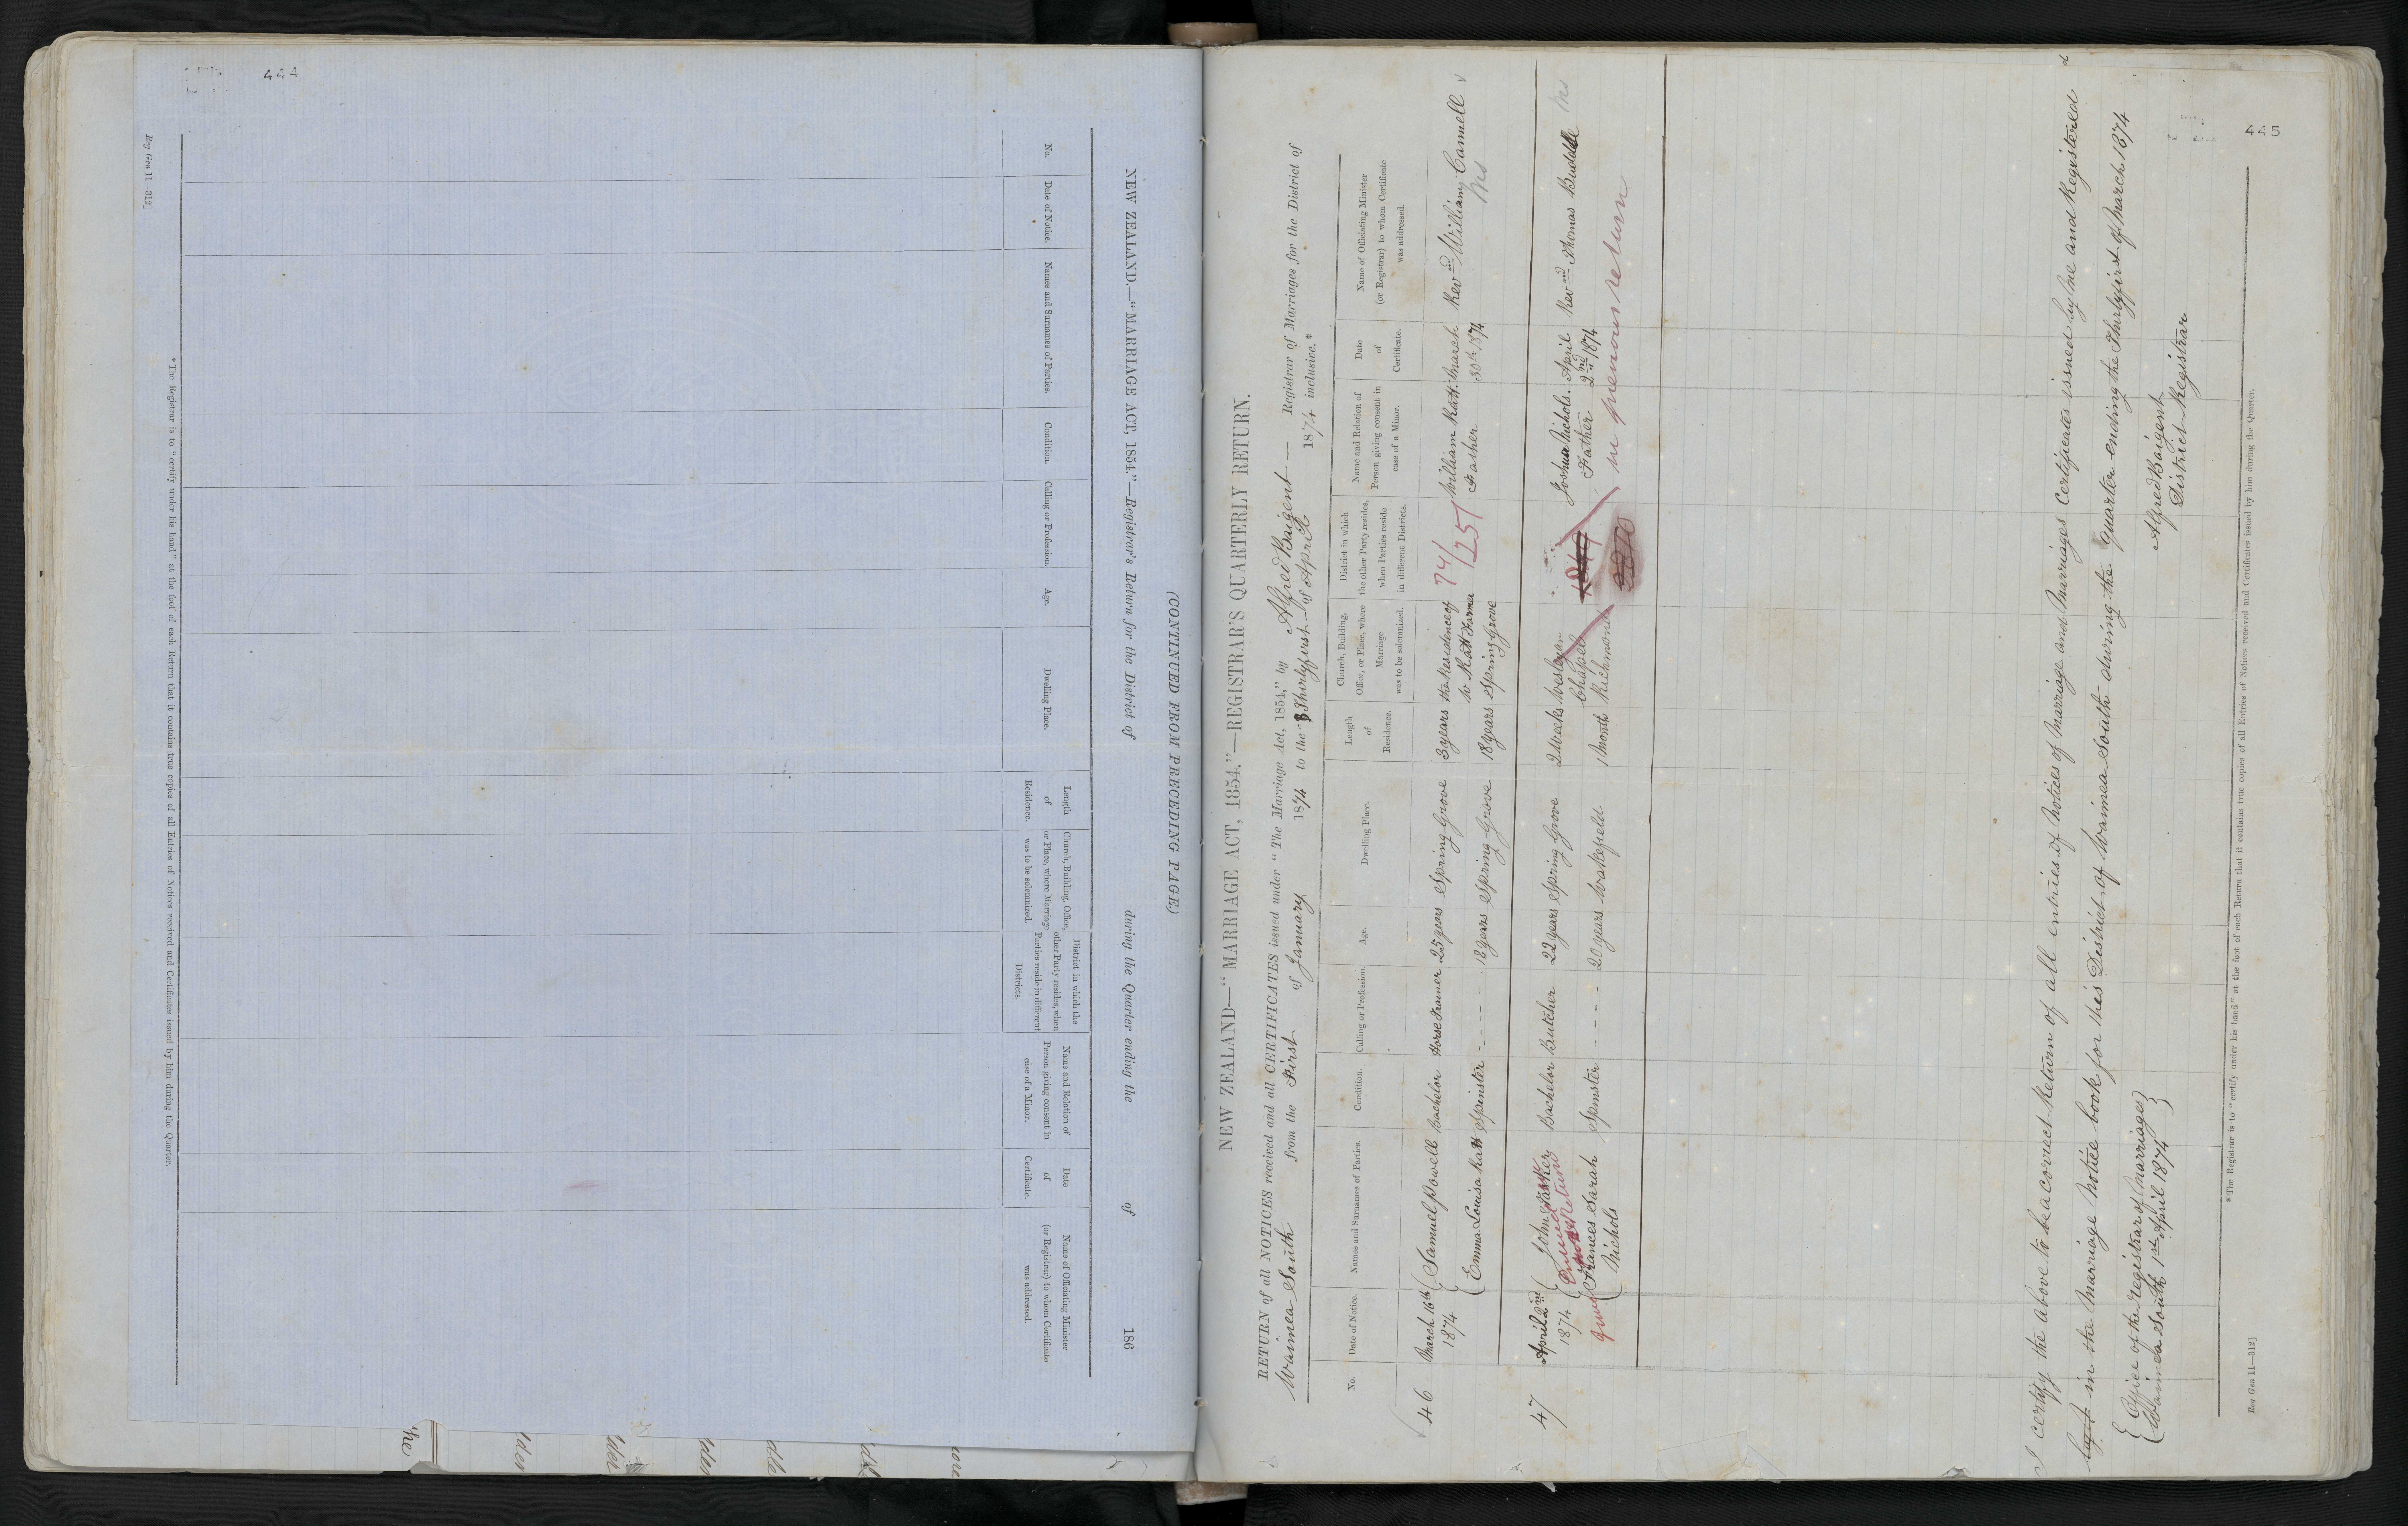 444
(CONTINUED FROM PRECEDING PAGE.)
NEW ZEALAND.—"MARRIAGE ACT, 1854."—Registrar's Return for the District of during the Quarter ending the of 186
No.
Date of Notice.
Names and Surnames of Parties.
Condition.
Calling or Profession.
Age.
Dwelling Place.
Length
of
Residence.
Church, Building, Office,
or Place, where Marriage
was to be solemnized.
District in which the
other Party resides, when
Parties reside in different
Districts.
Name and Relation of
Person giving consent in
case of a Minor.
Date
of
Certificate.
Name of Officiating Minister
(or Registrar) to whom Certificate
was addressed.
* The Registrar is to "certify under his hand" at the foot of each Return that it contains true copies of all Entries of Notices received and Certificates issued by him during the Quarter.
Reg Gen 11—312]
445
NEW ZEALAND—"MARRIAGE ACT, 1854."—REGISTRAR'S QUARTERLY RETURN.
RETURN of all NOTICES received and all CERTIFICATES issued under "The Marriage Act, 1854," by Alfred Baigent — Registrar of Marriages for the District of
Waimea South from the First of January 1874 to the Thirtyfirst of April 1874 inclusive.*
No.
Date of Notice.
Names and Surnames of Parties.
Condition.
Calling or Profession.
Age.
Dwelling Place.
Length
of
Residence.
Church, Building,
Office, or Place, where
Marriage
was to be solemnized.
District in which
the other Party resides,
when Parties reside
in different Districts.
Name and Relation of
Person giving consent in
case of a Minor.
Date
of
Certificate.
Name of Officiating Minister
(or Registrar) to whom Certificate
was addressed.
46 March 16th Samuel Powell Bachelor Horse Trainer 25 years Spring Grove 3 years the Residence of 74/ William Ratt. March Revnd William Camell
1874 W Ratt Farma 1251 Father 30th 1874
Emma Louisa Ratt Spinster - - - - 18 years Spring Grove 18 years Spring Grove
47 April 2nd John Tasker Bachelor Butcher 22 years Spring Grove 2 Weeks Wesleyan Joshua Nichols. April Revnd Thomas Buddle
1874 Chapel Father 2nd 1874
Frances Sarah Spinster - - - - 20 years Wakefield 1 Month Richmond in previous return
Nichols
I certify the above to be a correct Return of all entries of Notices of Marriage and Marriages Certificates issued by me and Registered
in the Marriage Notice book for this District of Waimea South during the Quarter ending the Thirtyfirst of March 1874
Office of the registrar of Marriages
Waimea South 1st April 1874
Alfred Baigent
District Registrar
* The Registrar is to "certify under his hand" at the foot of each Return that it contains true copies of all Entries of Notices received and Certificates issued by him during the Quarter.
Reg Gen 11—312]